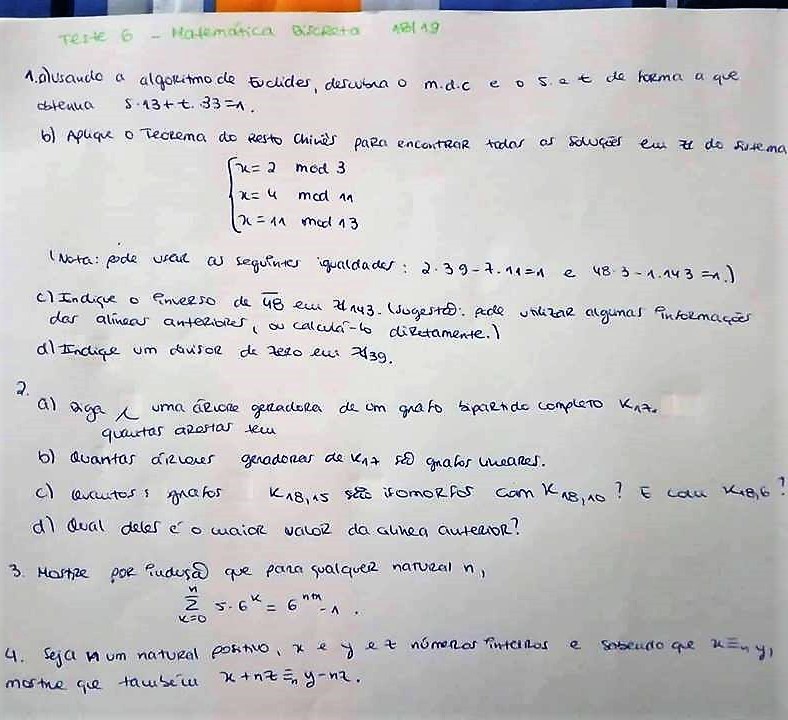 Teste 6 - Matemática Discreta 18/19
1.a) Usando o algoritmo de Euclides, descubra o m.d.c e o s. e t de forma a que
obtenha s·13+t·33=1.
b) Aplique o Teorema do Resto Chinês para encontrar todas as soluções em ℤ do sistema
x = 2 mod 3
x = 4 mod 11
x = 11 mod 13
(Nota: pode usar as seguintes igualdades: 2·39-7·11=1 e 48·3-1·143=1.)
c) Indique o inverso de 48̅ em ℤ143. (sugestão: pode utilizar algumas informações
das alíneas anteriores, ou calculá-lo diretamente.)
d) Indique um divisor de zero em ℤ39.
2.
a) Diga uma árvore geradora de um grafo bipartido completo K17.
quantas arestas tem
b) Quantas árvores geradoras de K17 são grafos lineares.
c) Quantos grafos K18,15 são isomorfos com K18,10? E com K18,6?
d) Qual deles é o maior valor da alínea anterior?
3. Mostre por indução que para qualquer natural n,
n
Σ 5·6^k = 6^n+1 - 1.
k=0
4. Seja n um natural positivo, x e y e z números inteiros e sabendo que x ≡n y,
mostre que também x+nz ≡n y-nz.